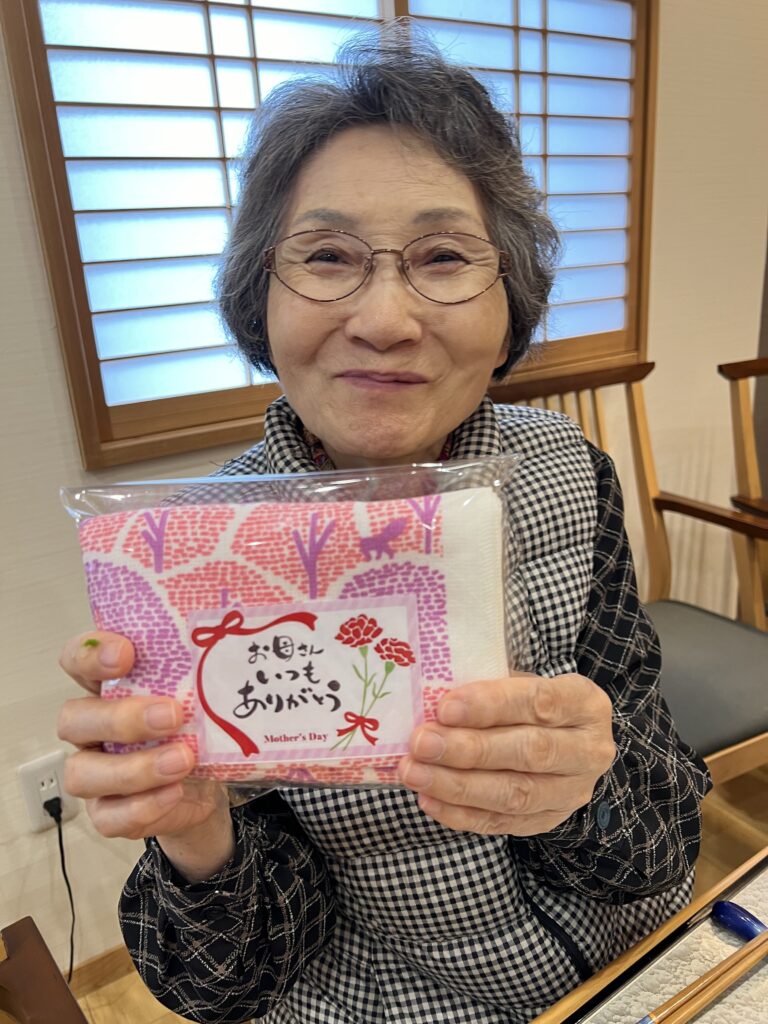 お母さん
いつも
ありがとう
Mother's Day